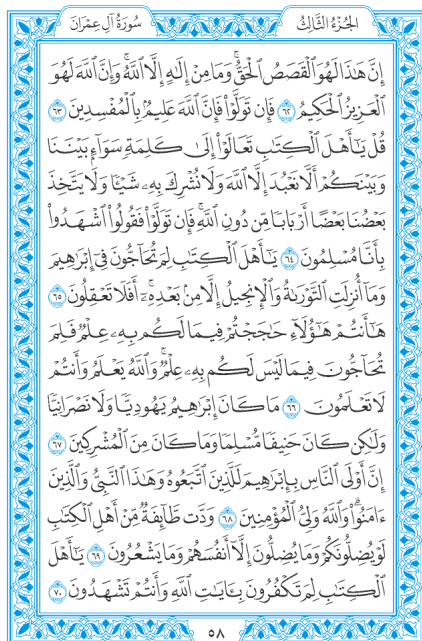 الجُزْءُ الثَّالِثُ
سُورَةُ آلِ عِمْرَانَ
إِنَّ هَٰذَا لَهُوَ ٱلْقَصَصُ ٱلْحَقُّ ۚ وَمَا مِنْ إِلَٰهٍ إِلَّا ٱللَّهُ ۚ وَإِنَّ ٱللَّهَ لَهُوَ
ٱلْعَزِيزُ ٱلْحَكِيمُ ٦٢ فَإِن تَوَلَّوْا۟ فَإِنَّ ٱللَّهَ عَلِيمٌۢ بِٱلْمُفْسِدِينَ ٦٣
قُلْ يَٰٓأَهْلَ ٱلْكِتَٰبِ تَعَالَوْا۟ إِلَىٰ كَلِمَةٍ سَوَآءٍۭ بَيْنَنَا
وَبَيْنَكُمْ أَلَّا نَعْبُدَ إِلَّا ٱللَّهَ وَلَا نُشْرِكَ بِهِۦ شَيْـًٔا وَلَا يَتَّخِذَ
بَعْضُنَا بَعْضًا أَرْبَابًا مِّن دُونِ ٱللَّهِ ۚ فَإِن تَوَلَّوْا۟ فَقُولُوا۟ ٱشْهَدُوا۟
بِأَنَّا مُسْلِمُونَ ٦٤ يَٰٓأَهْلَ ٱلْكِتَٰبِ لِمَ تُحَآجُّونَ فِىٓ إِبْرَٰهِيمَ
وَمَآ أُنزِلَتِ ٱلتَّوْرَىٰةُ وَٱلْإِنجِيلُ إِلَّا مِنۢ بَعْدِهِۦٓ ۚ أَفَلَا تَعْقِلُونَ ٦٥
هَٰٓأَنتُمْ هَٰٓؤُلَآءِ حَٰجَجْتُمْ فِيمَا لَكُم بِهِۦ عِلْمٌ فَلِمَ
تُحَآجُّونَ فِيمَا لَيْسَ لَكُم بِهِۦ عِلْمٌ ۚ وَٱللَّهُ يَعْلَمُ وَأَنتُمْ
لَا تَعْلَمُونَ ٦٦ مَا كَانَ إِبْرَٰهِيمُ يَهُودِيًّا وَلَا نَصْرَانِيًّا
وَلَٰكِن كَانَ حَنِيفًا مُّسْلِمًا وَمَا كَانَ مِنَ ٱلْمُشْرِكِينَ ٦٧
إِنَّ أَوْلَى ٱلنَّاسِ بِإِبْرَٰهِيمَ لَلَّذِينَ ٱتَّبَعُوهُ وَهَٰذَا ٱلنَّبِىُّ وَٱلَّذِينَ
ءَامَنُوا۟ ۗ وَٱللَّهُ وَلِىُّ ٱلْمُؤْمِنِينَ ٦٨ وَدَّت طَّآئِفَةٌ مِّنْ أَهْلِ ٱلْكِتَٰبِ
لَوْ يُضِلُّونَكُمْ وَمَا يُضِلُّونَ إِلَّآ أَنفُسَهُمْ وَمَا يَشْعُرُونَ ٦٩ يَٰٓأَهْلَ
ٱلْكِتَٰبِ لِمَ تَكْفُرُونَ بِـَٔايَٰتِ ٱللَّهِ وَأَنتُمْ تَشْهَدُونَ ٧٠
٥٨